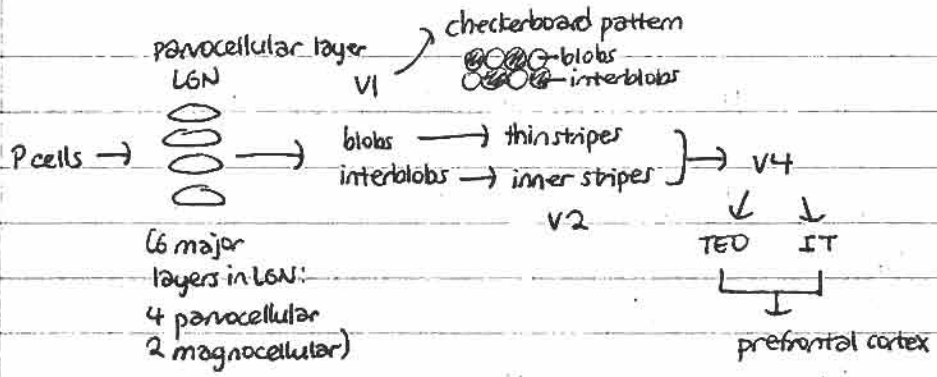 checkerboard pattern
parvocellular layer
LGN
V1
blobs
interblobs
P cells → → blobs → thin stripes
interblobs → inner stripes
→ V4
V2
TEO IT
(6 major
layers in LGN:
4 parvocellular
2 magnocellular)
prefrontal cortex